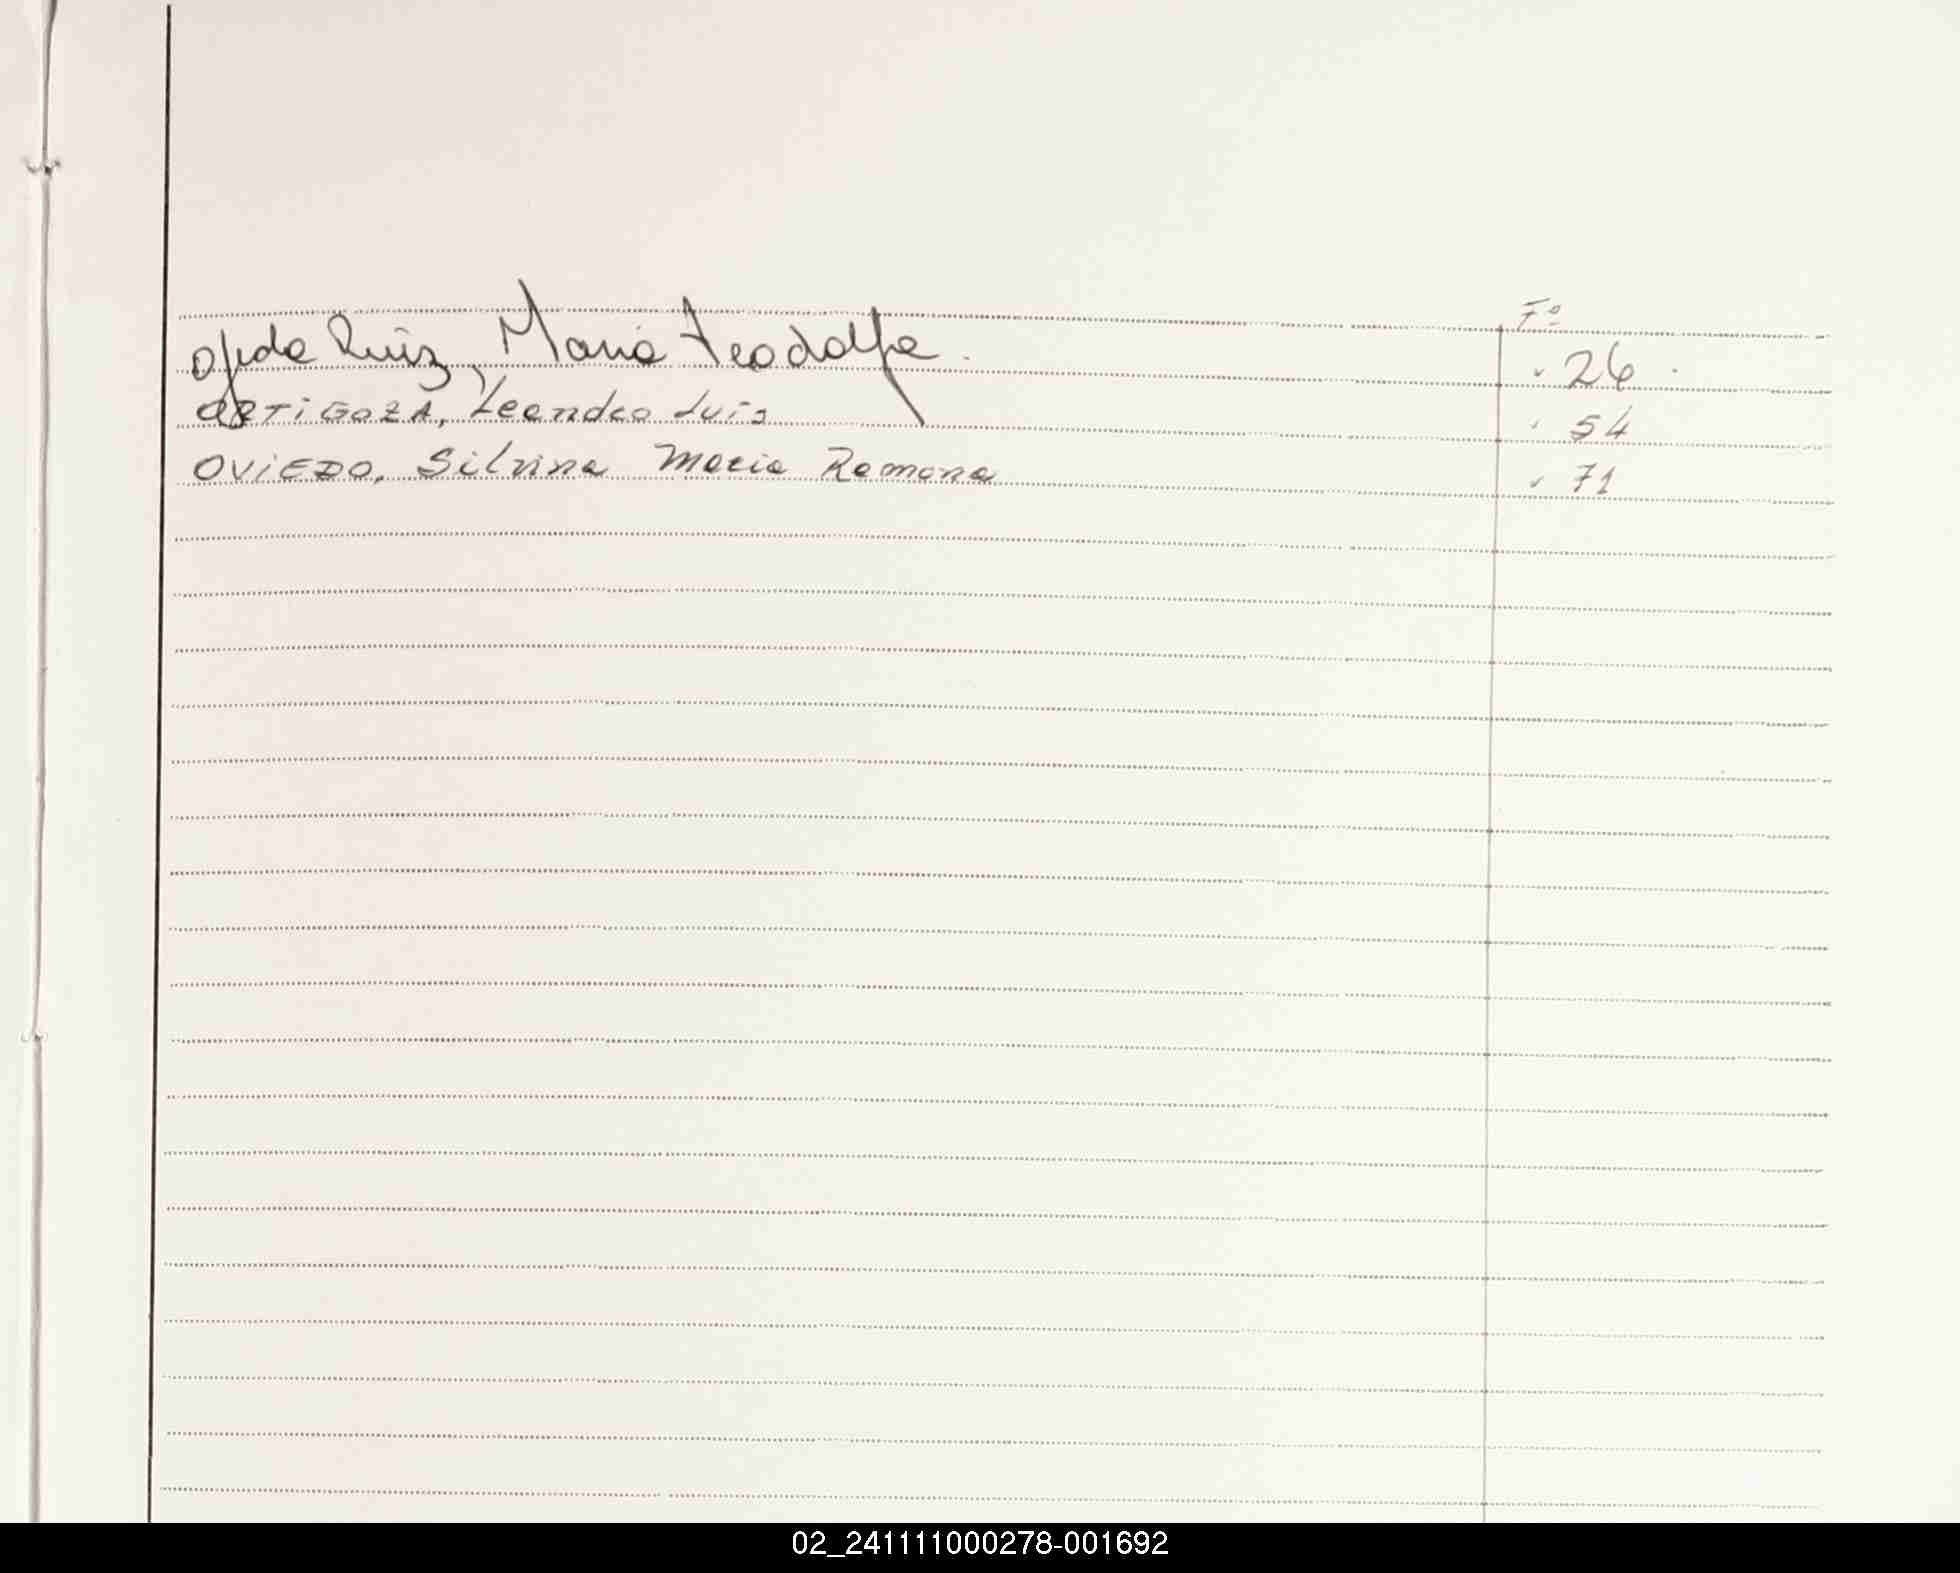 Fº
Ojeda Ruiz, Maria Teodolfa. 26.
ORTIGOZA, Leandro Luis 54
OVIEDO, Silvina Maria Ramona 71
02_241111000278-001692